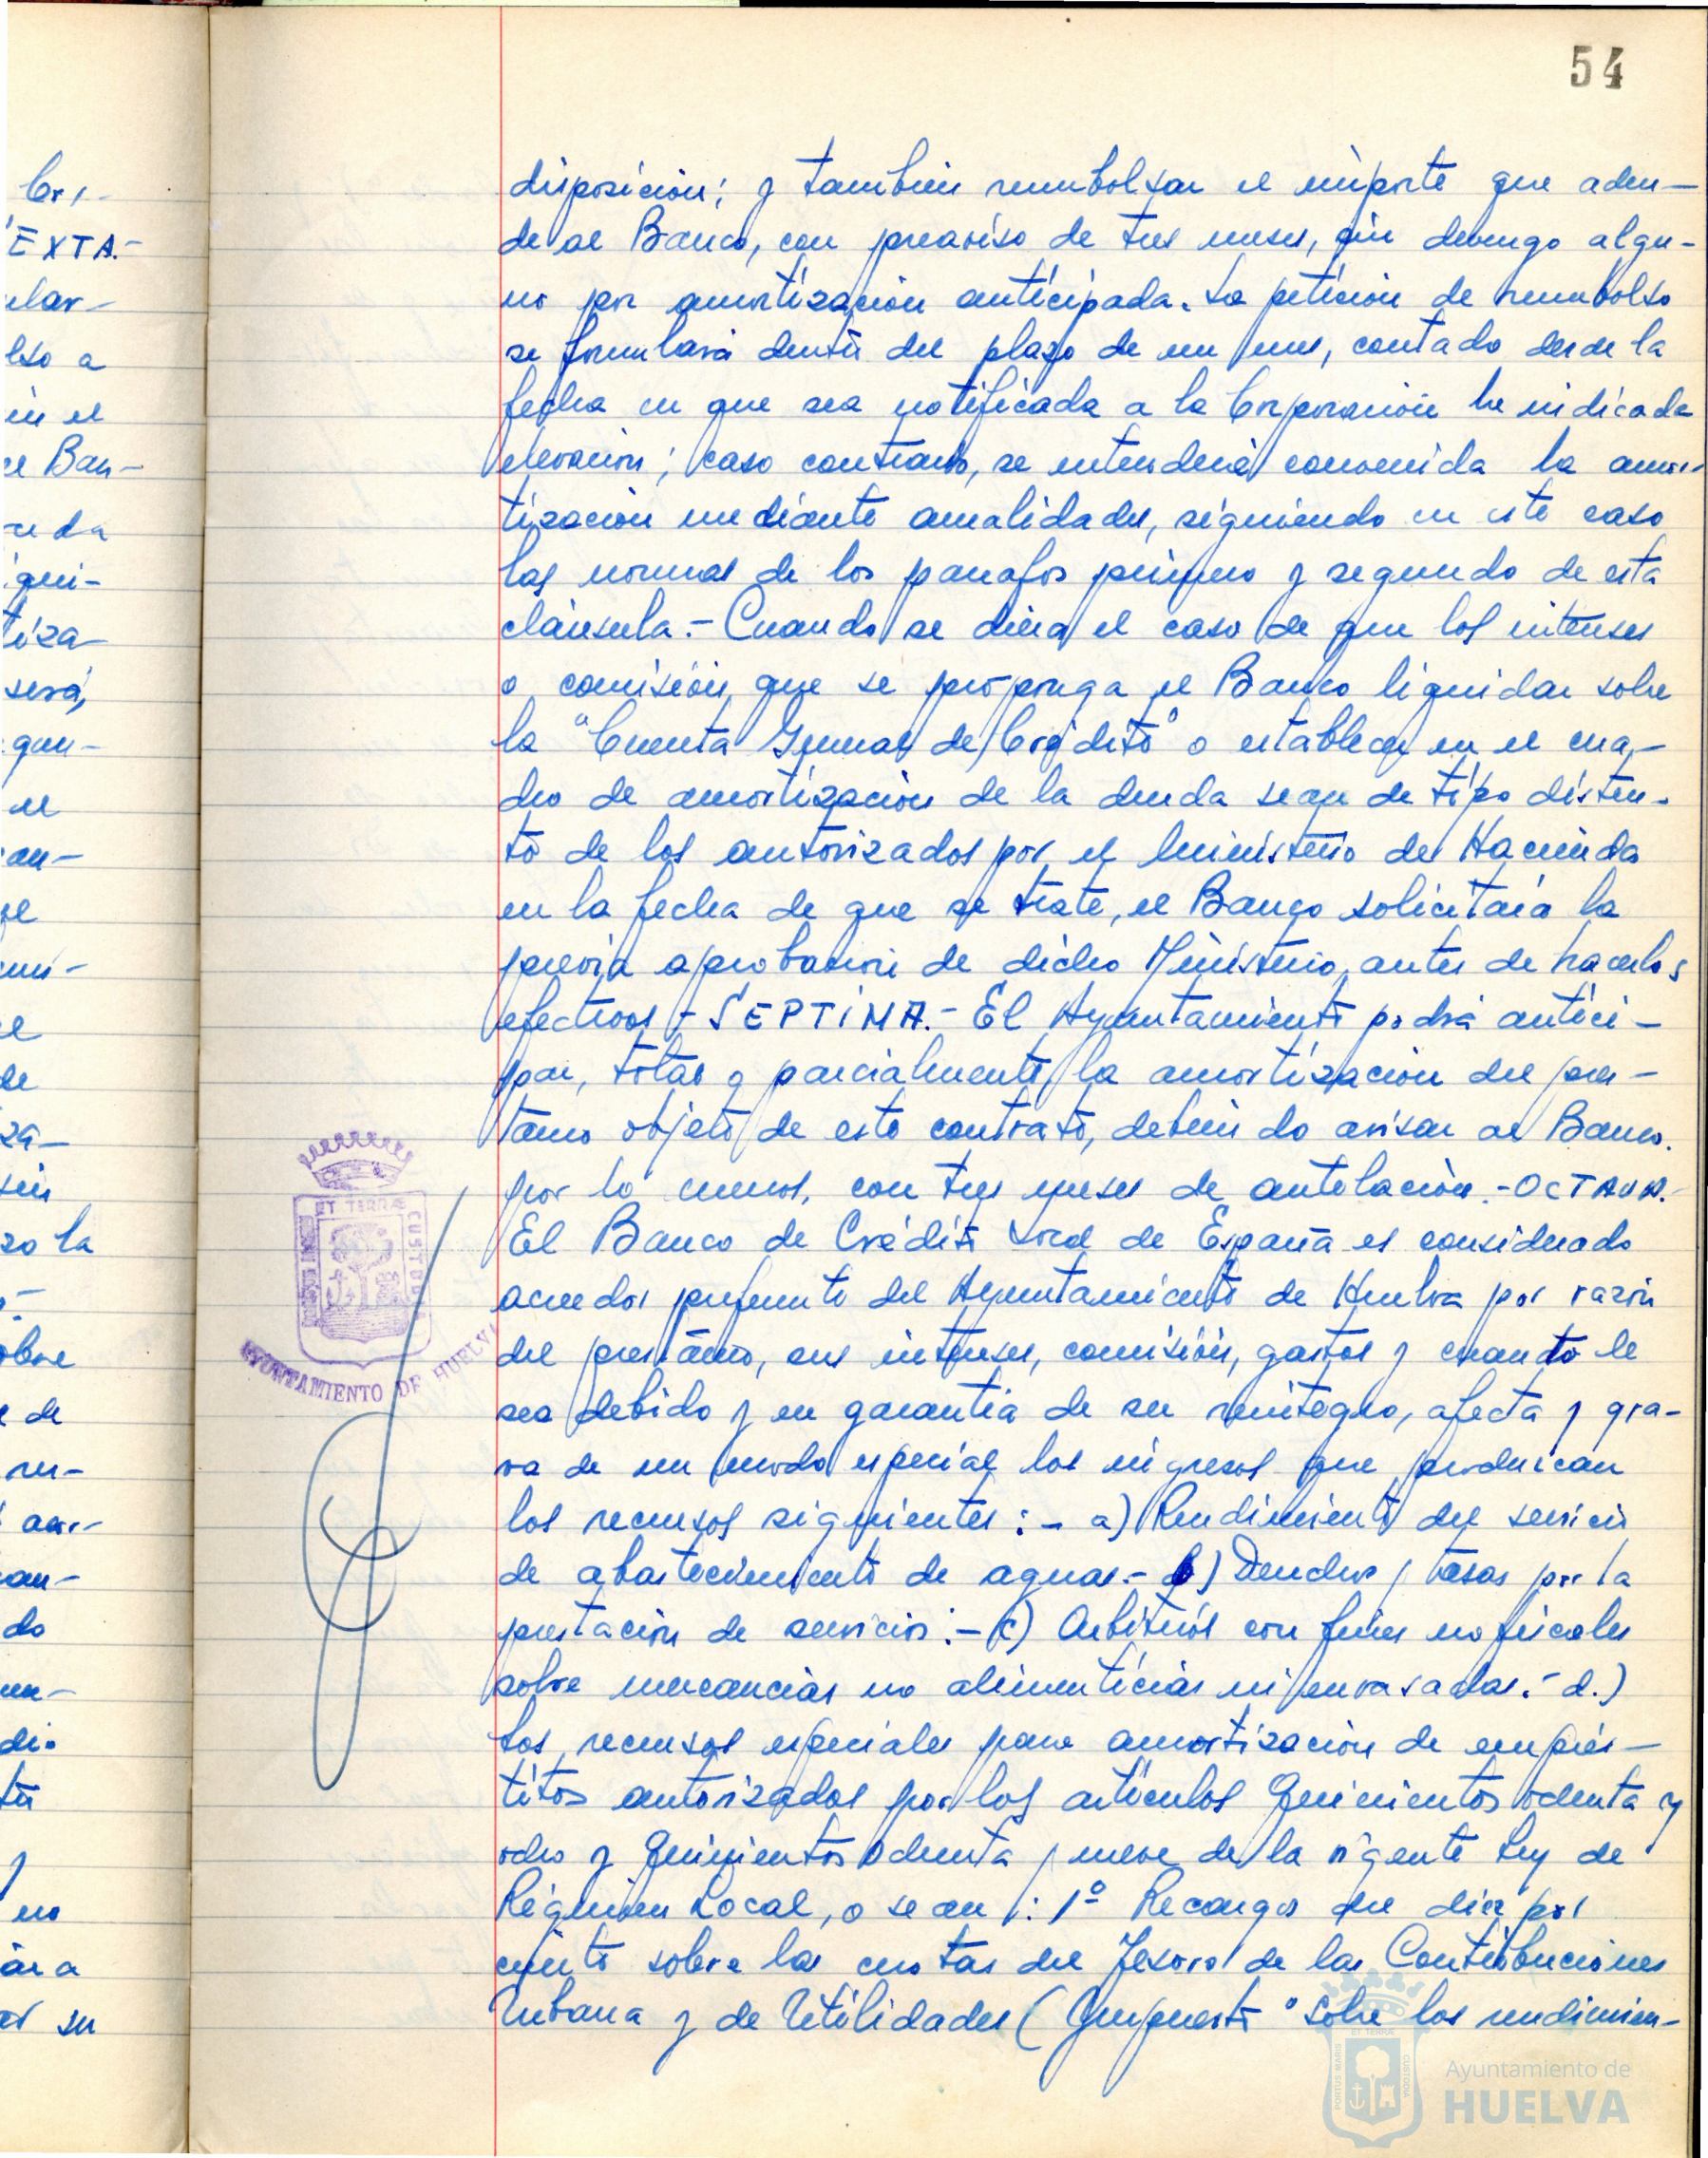 54
disposición; y tambien reembolsar el importe que adeu-
de al Banco, con preaviso de tres meses, sin devengo algu-
no por amortización anticipada. La petición de reembolso
se formulará dentro del plazo de un mes, contado desde la
fecha en que sea notificada a la Corporación la indicada
elevación; caso contrario, se entenderá convenida la amor-
tización mediante anualidades, siguiendo en este caso
las normas de los parrafos primero y segundo de esta
cláusula.- Cuando se diera el caso de que los intereses
o comisión que se proponga el Banco liquidar sobre
la "Cuenta General de Crédito" o establecer en el cua-
dro de amortización de la deuda sean de tipo distin-
to de los autorizados por el Ministerio de Hacienda
en la fecha de que se trate, el Banco solicitará la
previa aprobación de dicho Ministerio, antes de hacerlos
efectivos.- SEPTIMA.- El Ayuntamiento podrá antici-
par, total o parcialmente, la amortización del pres-
tamo objeto de este contrato, debiendo avisar al Banco.
por lo menos, con tres meses de antelación.- OCTAVA.-
El Banco de Crédito Local de España es considerado
acreedor preferente del Ayuntamiento de Huelva por razón
del prestamo, sus intereses, comisión, gastos y cuanto le
sea debido y en garantia de su reintegro, afecta y gra-
va de un modo especial los ingresos que produzcan
los recursos siguientes:- a) Rendimiento del servicio
de abastecimiento de aguas.- b) Derechos y tasas por la
prestación de servicios:- c) Arbitrios con fines no fiscales
sobre mercancias no alimenticias ni envasadas.- d.)
Los recursos especiales para amortización de emprés-
titos autorizados por los artículos Quinientos ochenta y
ocho y Quinientos ochenta y nueve de la vigente Ley de
Régimen Local, o sean: 1º Recargo del diez por
ciento sobre las cuotas del Tesoro de las Contribuciones
Urbana y de Utilidades (Impuesto "Sobre los rendimien-
ET TERRAE
CUSTODIA
AYUNTAMIENTO DE HUELVA
Ayuntamiento de
HUELVA
EXTA.-
lso a
el Ban-
será,
zo la
obre
e de
do
no
su